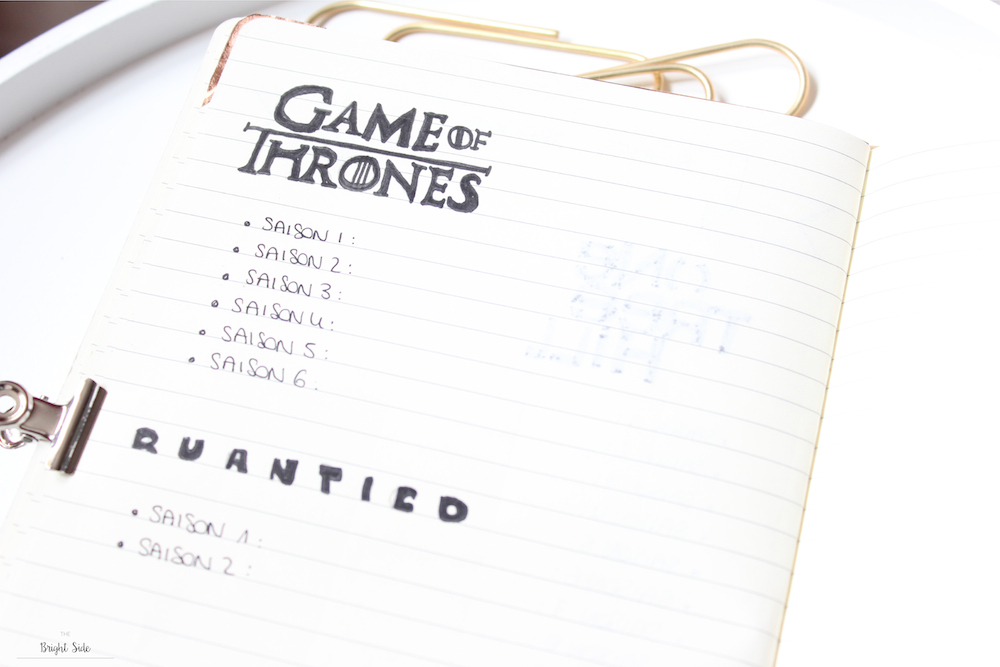 GAME OF
THRONES
• SAISON 1 :
• SAISON 2 :
• SAISON 3 :
• SAISON 4 :
• SAISON 5 :
• SAISON 6 .
QUANTICO
• SAISON 1 :
• SAISON 2 :
THE
Bright Side